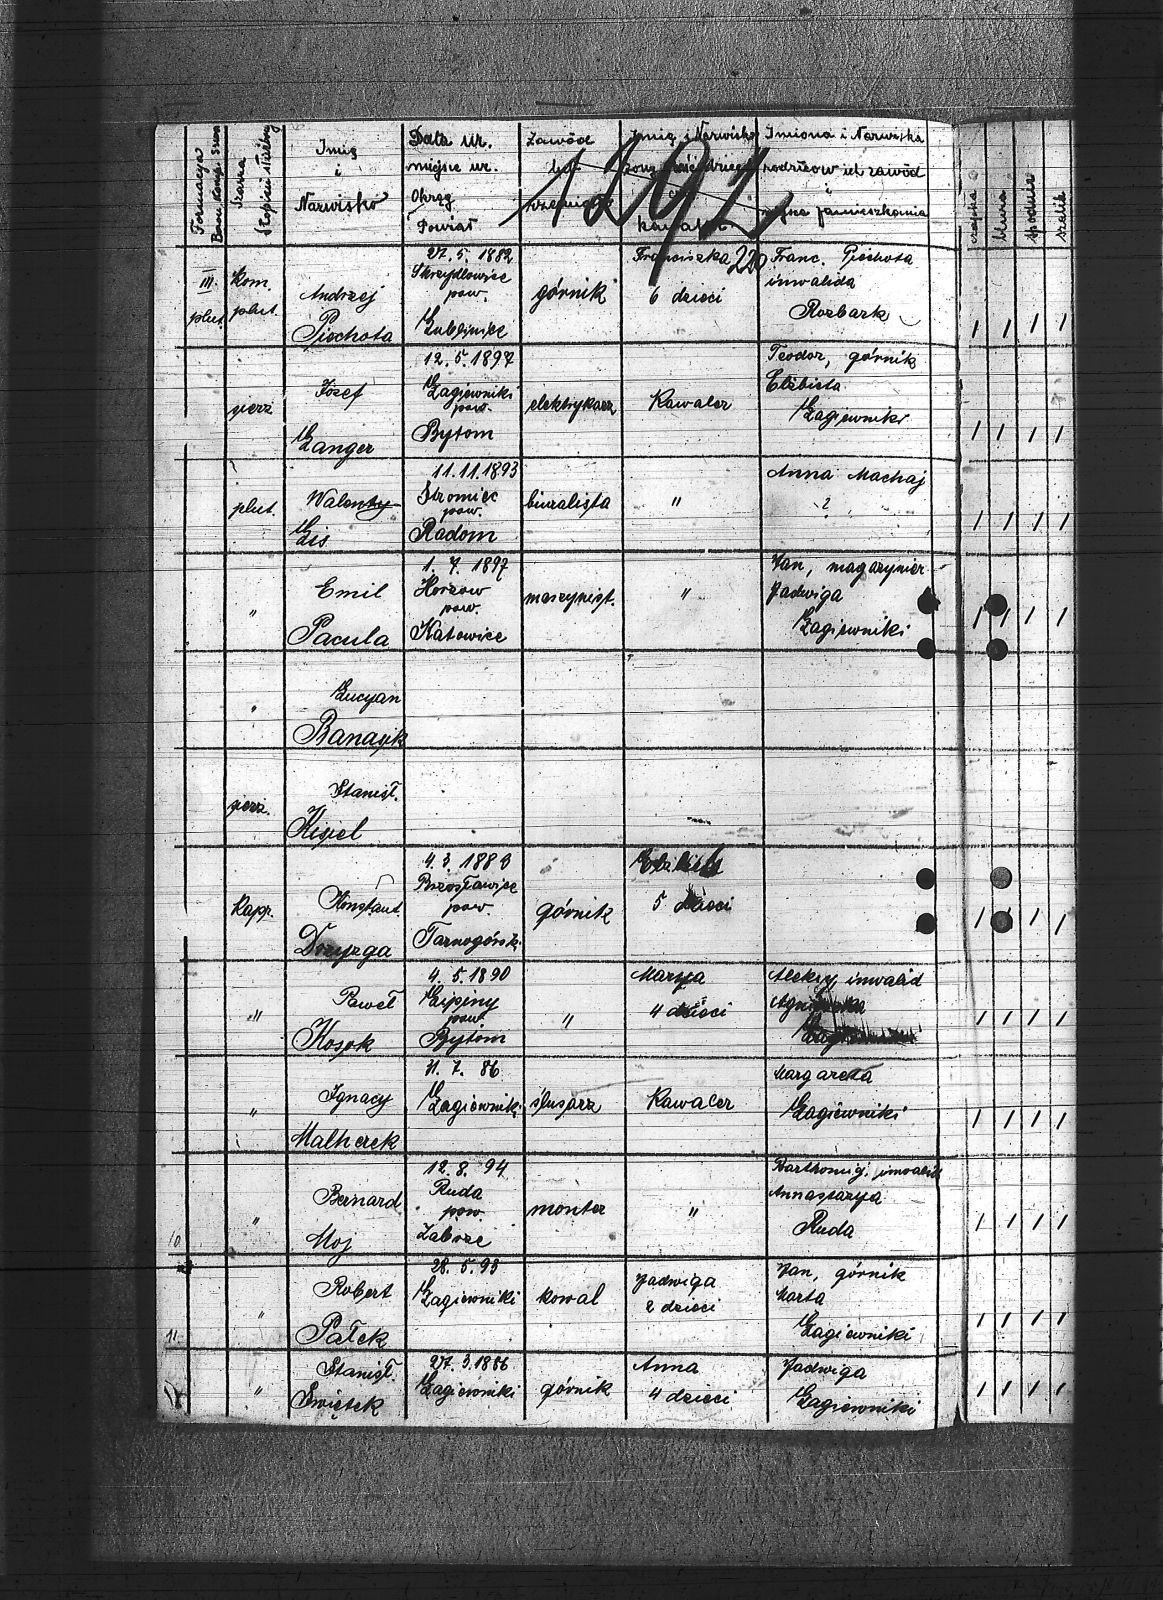 Formacya
Szarża
Stopień służbowy
Imię
i
Nazwisko
Data ur.
miejsce ur.
Okręg
Powiat
Zawód
Imię i Nazwisko
żony ilość dzieci
kawaler
Imiona i Nazwiska
rodziców ich zawód
i
miejsce zamieszkania
czapka
bluza
spodnie
szalik
1292
220
III.
plut.
kom.
plut.
Andrzej
Piechota
27. 5. 1882
pow.
Lubliniec
górnik
Franciszka
6 dzieci
Franc. Piechota
inwalida
Rozbark
/ / / /
gierz
Józef
Langer
12. 5. 1897
Łagiewniki
pow.
Bytom
elektrykarz
Kawaler
Teodor, górnik
Elżbieta
Łagiewniki
/ / / /
plut.
Walenty
Lis
11. 11. 1893
Stromiec
pow.
Radom
biuralista
"
Anna Machaj
?
/ / / /
"
Emil
Pacula
1. 7. 1897
Horzow
pow.
Katowice
maszynist.
"
Jan, magazynier
Jadwiga
Łagiewniki
/ / / /
"
Lucyan
Banasik
gierz.
Stanisł.
Kisiel
Kapr.
Konstant.
Dzyzga
4. 3. 1883
Brzosławice
pow.
Tarnogórsk.
górnik
5 dzieci
/ / / /
"
Paweł
Kosok
4. 5. 1890
Lipiny
pow.
Bytom
"
Marya
4 dzieci
Aleksy, inwalid
/ / / /
"
Ignacy
Malherek
31. 7. 86
Łagiewniki
ślusarz
Kawaler
Margareta
Łagiewniki
/ / / /
10
"
Bernard
Moj
12. 8. 94
Ruda
pow.
Zabrze
monter
"
Barthomiej. inwalid
Annastazya
Ruda
/ / / /
11.
"
Robert
Pałek
28. 5. 93
Łagiewniki
kowal
Jadwiga
2 dzieci
Jan, górnik
Marta
Łagiewniki
/ / / /
12
"
Stanisł.
Świętek
27. 3. 1886
Łagiewniki
górnik
Anna
4 dzieci
Jadwiga
Łagiewniki
/ / / /